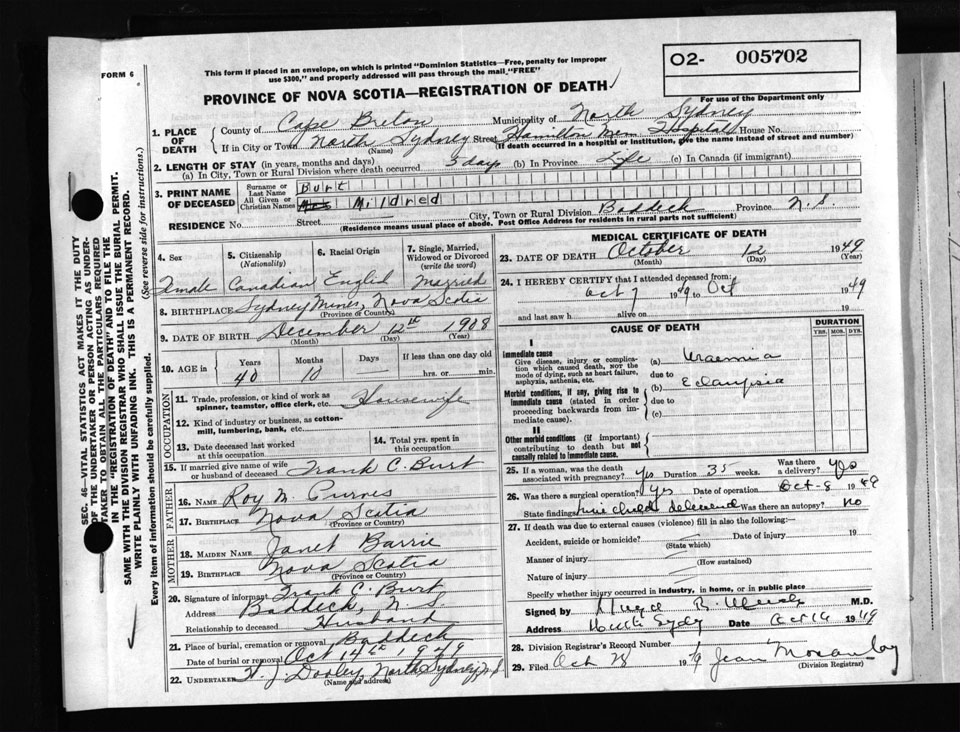 FORM 6
This form if placed in an envelope, on which is printed "Dominion Statistics—Free, penalty for improper
use $300," and properly addressed will pass through the mail "FREE"
O2- 005702
PROVINCE OF NOVA SCOTIA—REGISTRATION OF DEATH
For use of the Department only
1. PLACE OF DEATH
County of Cape Breton Municipality of North Sydney
If in City or Town North Sydney Street Hamilton Mem Hospital House No.
(Name) (If death occurred in a hospital or institution, give the name instead of street and number)
2. LENGTH OF STAY (in years, months and days)
(a) In City, Town or Rural Division where death occurred 5 days (b) In Province Life (c) In Canada (if immigrant)
3. PRINT NAME OF DECEASED
Surname or Last Name Burt
All Given or Christian Names Mildred
RESIDENCE No. Street City, Town or Rural Division Baddeck Province N.S.
(Residence means usual place of abode. Post Office Address for residents in rural parts not sufficient)
4. Sex
5. Citizenship (Nationality)
6. Racial Origin
7. Single, Married, Widowed or Divorced (write the word)
Female Canadian English Married
8. BIRTHPLACE Sydney Mines, Nova Scotia
(Province or Country)
9. DATE OF BIRTH December 12th 1908
(Month) (Day) (Year)
10. AGE in Years Months Days If less than one day old
40 10 hrs. or min.
OCCUPATION
11. Trade, profession, or kind of work as spinner, teamster, office clerk, etc. Housewife
12. Kind of industry or business, as cotton-mill, lumbering, bank, etc.
13. Date deceased last worked at this occupation
14. Total yrs. spent in this occupation
15. If married give name of wife or husband of deceased Frank C. Burt
FATHER
16. NAME Roy M. Purves
17. BIRTHPLACE Nova Scotia
(Province or Country)
MOTHER
18. MAIDEN NAME Janet Barrie
19. BIRTHPLACE Nova Scotia
(Province or Country)
20. Signature of informant Frank C. Burt
Address Baddeck, N.S.
Relationship to deceased Husband
21. Place of burial, cremation or removal Baddeck
Date of burial or removal Oct 14th 1949
22. UNDERTAKER J. Dooley, North Sydney N.S
(Name and address)
MEDICAL CERTIFICATE OF DEATH
23. DATE OF DEATH October 12 1949
(Month) (Day) (Year)
24. I HEREBY CERTIFY that I attended deceased from:
Oct 7 1949 to Oct 1949
and last saw h alive on 19
CAUSE OF DEATH
DURATION
YRS. MOS. DYS.
I
Immediate cause
Give disease, injury or complication which caused death, NOT the mode of dying, such as heart failure, asphyxia, asthenia, etc.
(a) Uraemia
due to
Morbid conditions, if any, giving rise to immediate cause (stated in order proceeding backwards from immediate cause).
(b) Eclampsia
due to
(c)
II
Other morbid conditions (if important) contributing to death but not causally related to immediate cause.
25. If a woman, was the death associated with pregnancy? Yes Duration 35 weeks. Was there a delivery? Yes
26. Was there a surgical operation? Yes Date of operation Oct-8 1949
State findings child delivered Was there an autopsy? no
27. If death was due to external causes (violence) fill in also the following:—
Accident, suicide or homicide? Date of injury 19
(State which)
Manner of injury
(How sustained)
Nature of injury
Specify whether injury occurred in industry, in home, or in public place
Signed by M.D.
Address North Sydney Date Oct 1949
28. Division Registrar's Record Number
29. Filed Oct 28 19 Jean
(Division Registrar)
SEC. 46—VITAL STATISTICS ACT MAKES IT THE DUTY
OF THE UNDERTAKER OR PERSON ACTING AS UNDER-
TAKER TO OBTAIN ALL THE PARTICULARS REQUIRED
IN THE "REGISTRATION OF DEATH" AND TO FILE THE
SAME WITH THE DIVISION REGISTRAR WHO SHALL ISSUE THE BURIAL PERMIT.
WRITE PLAINLY WITH UNFADING INK. THIS IS A PERMANENT RECORD.
Every item of information should be carefully supplied. (See reverse side for instructions.)